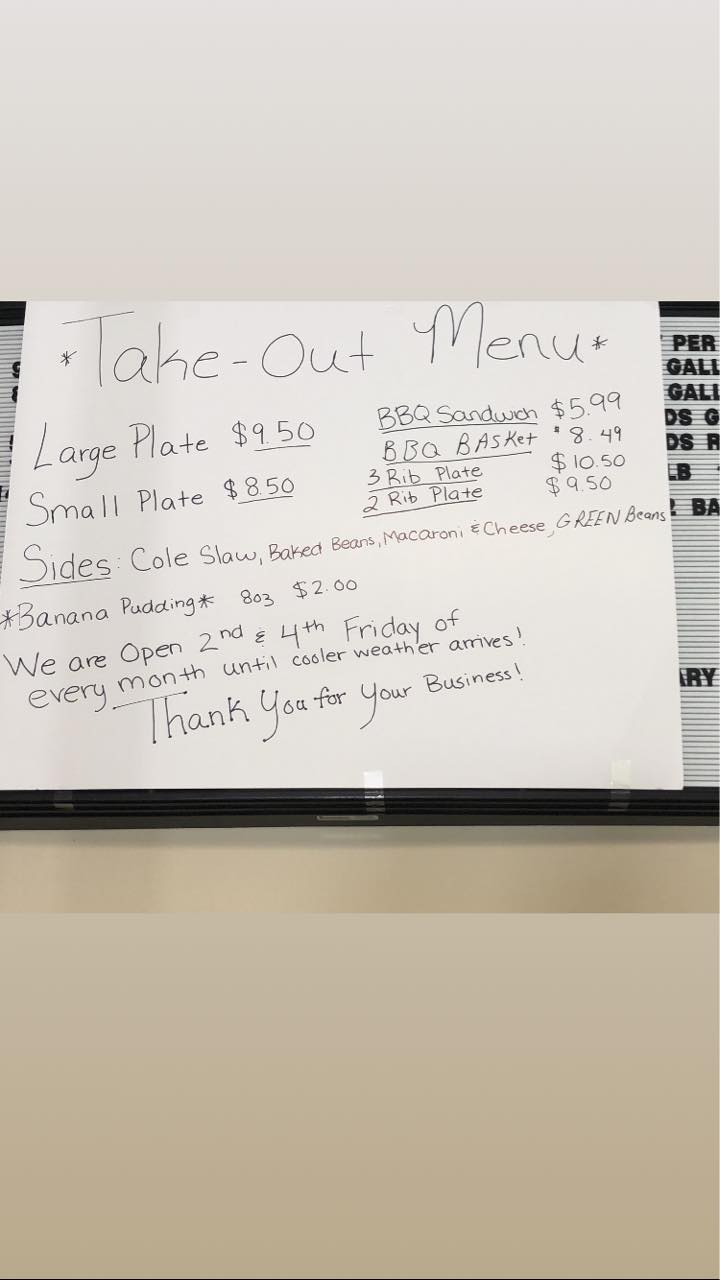 *Take-Out Menu*
Large Plate $9.50
Small Plate $8.50
BBQ Sandwich $5.99
BBQ BASket $8.49
3 Rib Plate $10.50
2 Rib Plate $9.50
Sides: Cole Slaw, Baked Beans, Macaroni & Cheese, GREEN Beans
*Banana Pudding* 8oz $2.00
We are Open 2nd & 4th Friday of
every month until cooler weather arrives!
Thank You for Your Business!
PER
GALL
GALL
DS G
DS R
LB
BA
ARY